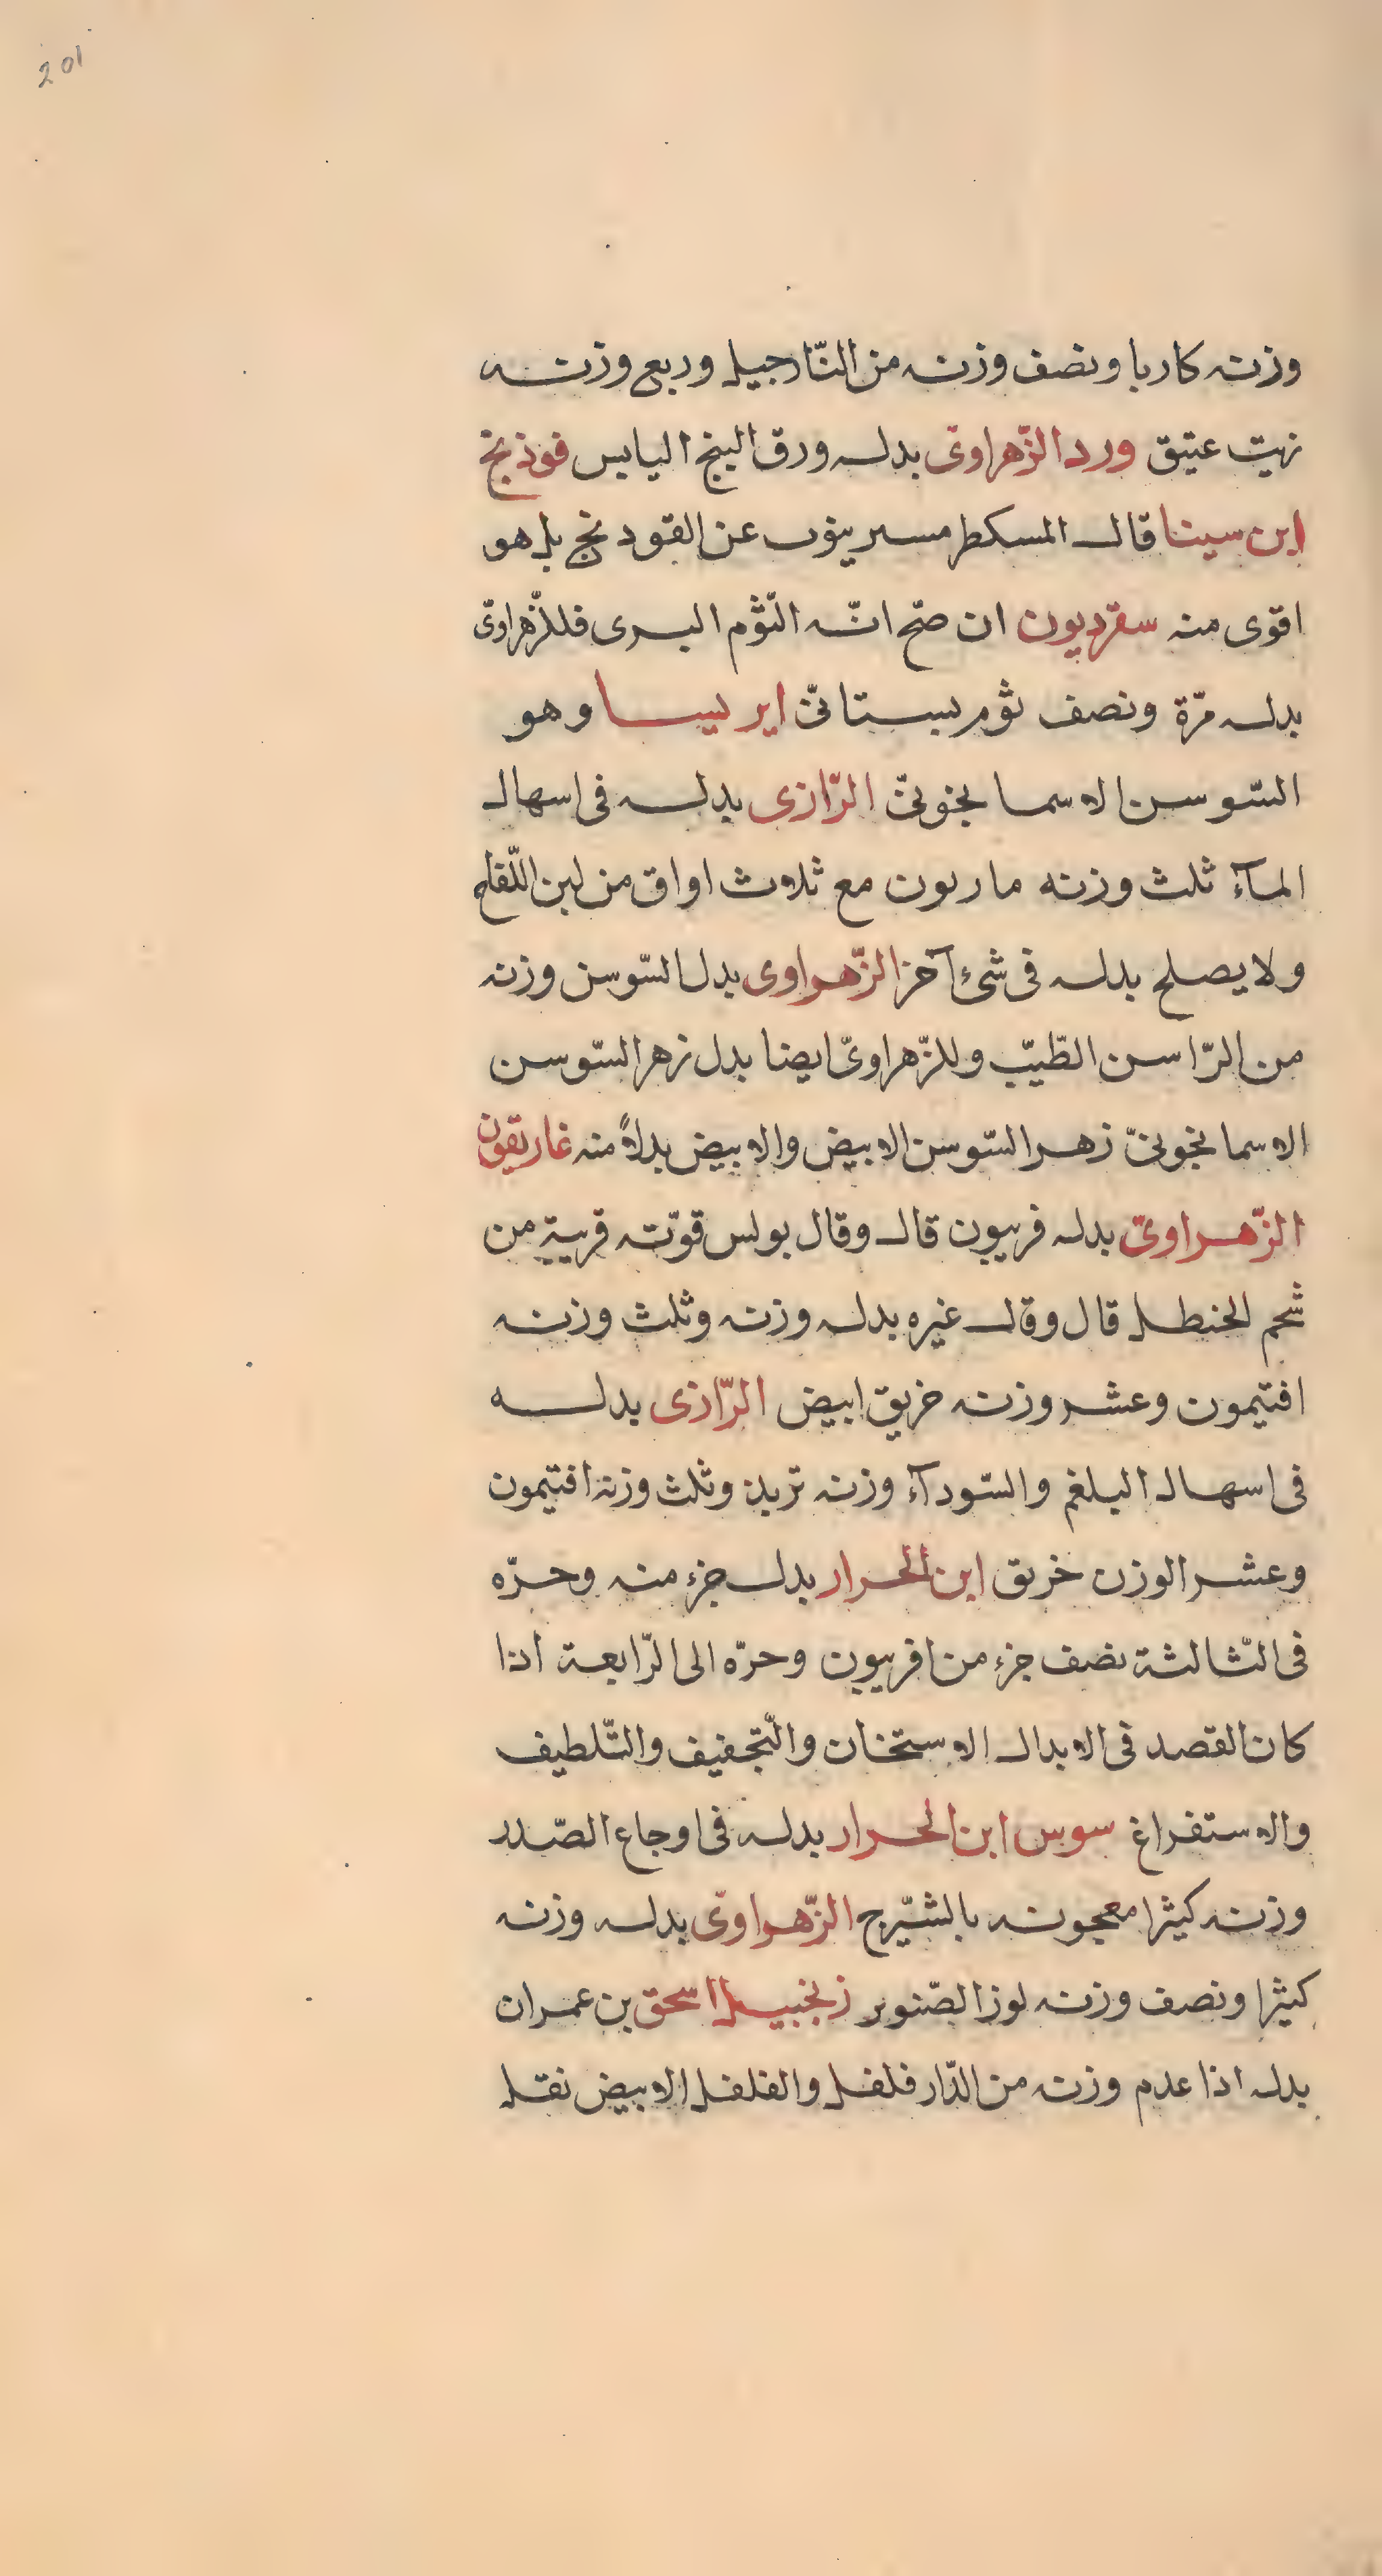 201
وزنه كاربا ونصف وزنه من النّارجيل وربع وزنه
زيت عتيق ورد الزّهراوىّ بدله ورق البنج اليابس فوذنج
ابن سينا قال المسكطرمسير ينوب عن القودنج بل هو
اقوى منه سقرديون ان صحّ انّه الثّوم البرى فللزّهراوىّ
بدله مرّة ونصف ثوم بستانىّ ايريسا وهو
السّوسن الاسمانجونىّ الرّازى بدله فى اسهال
المآء ثلث وزنه مازريون مع ثلاث اواق من لبن اللّقاح
ولا يصلح بدله فى شىء آخر الزّهراوى بدل السّوسن وزنه
من الرّاسن الطّيّب وللزّهراوىّ ايضا بدل زهر السّوسن
الاسمانجونىّ زهر السّوسن الابيض والابيض بدلاً منه غاريقون
الزّهراوىّ بدله فربيون قال وقال بولس قوّته قريبة من
شحم الحنظل قال وقال غيره بدله وزنه وثلث وزنه
افتيمون وعشر وزنه خربق ابيض الرّازى بدله
فى اسهال البلغم والسّودآء وزنه تربذ وثلث وزنه افتيمون
وعشر الوزن خربق ابن الحرار بدل جزء منه وحرّه
فى الثّالثة نصف جزء من افربيون وحرّه الى الرّابعة اذا
كان القصد فى الابدال الاستخان والتّجفيف والتّلطيف
والاستفراغ سوس ابن الحرار بدله فى اوجاع الصّدر
وزنه كثيرا معجونه بالشّيرج الزّهراوىّ بدله وزنه
كثيرا ونصف وزنه لوز الصّنوبر زنجبيل اسحق بن عمران
بدله اذا عدم وزنه من الدّار فلفل والفلفل الابيض نقل